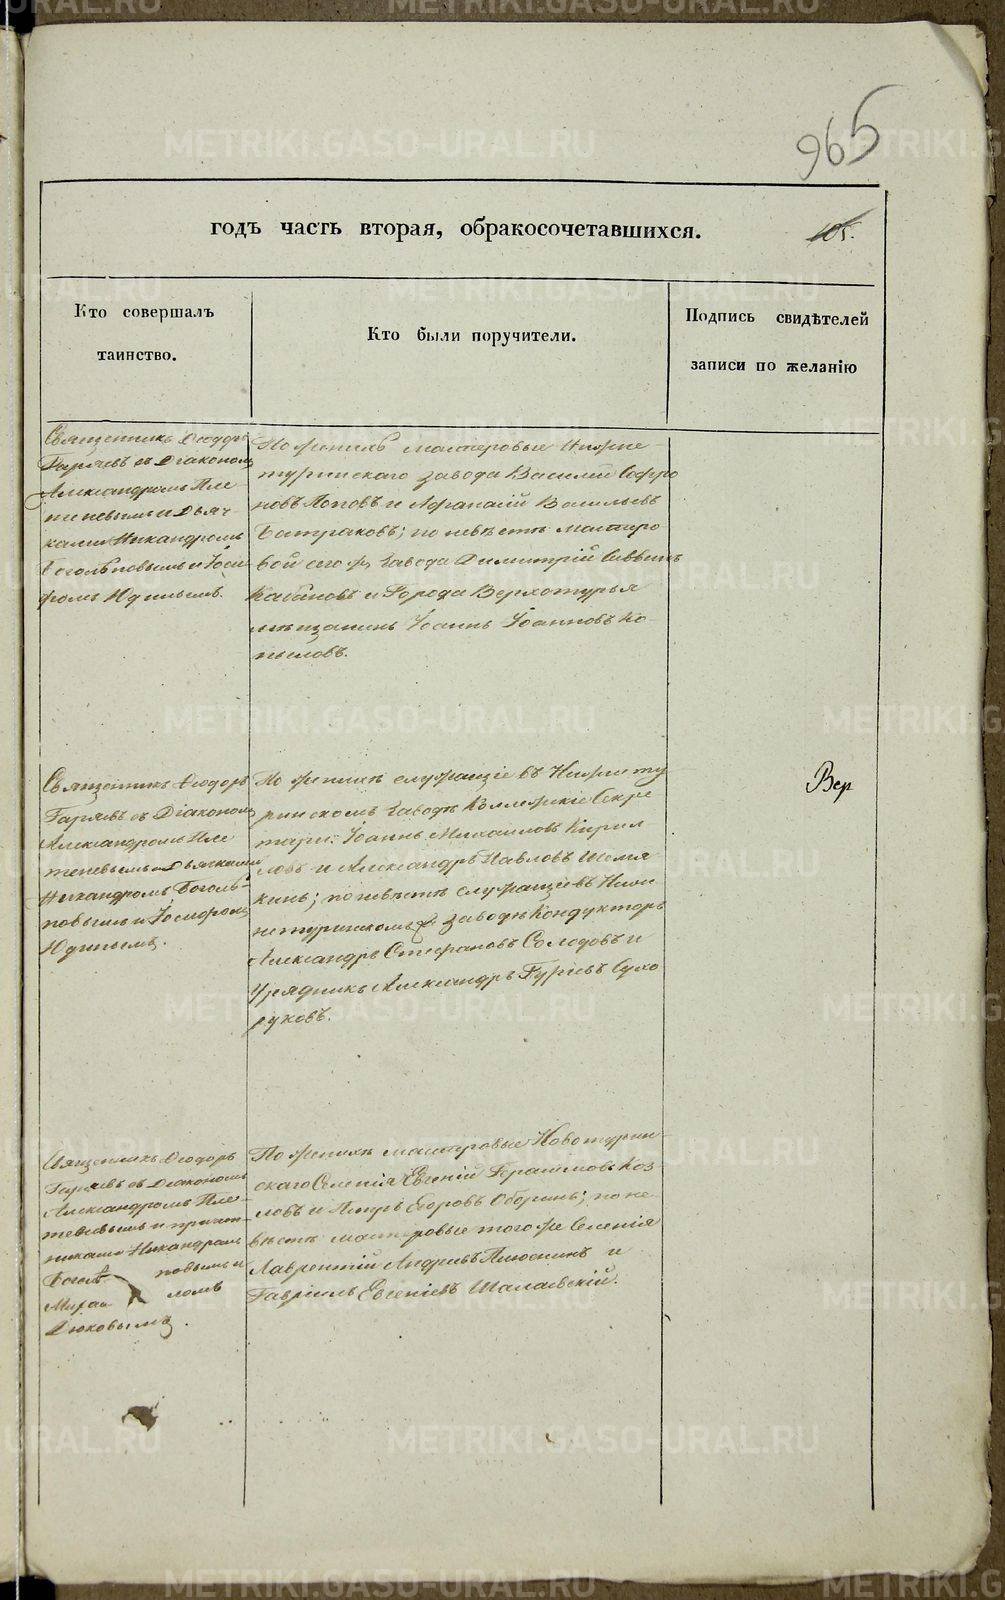 965
годъ часть вторая, обракосочетавшихся.
105.
Кто совершалъ
таинство.
Кто были поручители.
Подпись свидѣтелей
записи по желанію
Священникъ Ѳеодоръ
Гаряевъ съ Діакономъ
Александромъ Пле
теневымъ и Дьяч
ками Никандромъ
Боголѣповымъ и Іоси
фомъ Юдинымъ.
По женихѣ мастеровые Нижне
туринскаго завода Василій Софро
новъ Поповъ и Афанасій Васильевъ
Батраковъ; по невѣстѣ мастеро
вой сего ж завода Димитрій Саввинъ
Кабановъ и Города Верхотурья
мѣщанинъ Іоаннъ Іоанновъ Ко
пыловъ.
Священникъ Ѳеодоръ
Гаряевъ съ Діакономъ
Александромъ Пле
теневымъ и Дьячками
Никандромъ Боголѣ
повымъ и Іосифомъ
Юдинымъ.
По женихѣ служащіе въ Нижнету
ринскомъ заводѣ Коллежскіе Секре
тари: Іоаннъ Михаиловъ Кирил
ловъ и Александръ Павловъ Шемя
кинъ; по невѣстѣ служащіе въ Ниж
нетуринскомъ заводѣ Кондукторъ
Александръ Стефановъ Солодовъ и
Урядникъ Александръ Гурiевъ Сухо
руковъ.
Вер
Священникъ Ѳеодоръ
Гаряевъ съ Діакономъ
Александромъ Пле
теневымъ и причет
никами Никандромъ
Боголѣ повымъ и
Михаи ломъ
Дюковымъ.
По женихѣ мастеровые Новотурин
скаго Селенія Евгеній Герасимовъ Коз
ловъ и Петръ Егоровъ Оборинъ; по не
вѣстѣ мастеровые того же Селенія
Лаврентій Андреевъ Плюснинъ и
Гавріилъ Евгеніевъ Шалаевскій.
METRIKI.GASO-URAL.RU